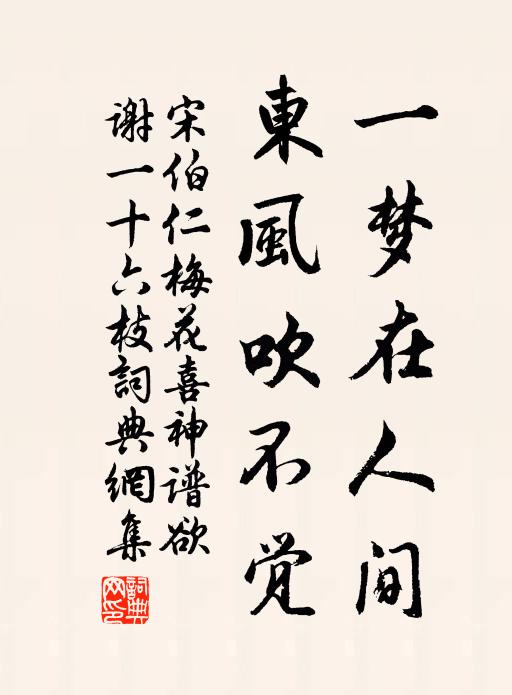 一梦在人间
東風吹不觉
宋伯仁梅花喜神谱欲
谢一十六枝詞典網集